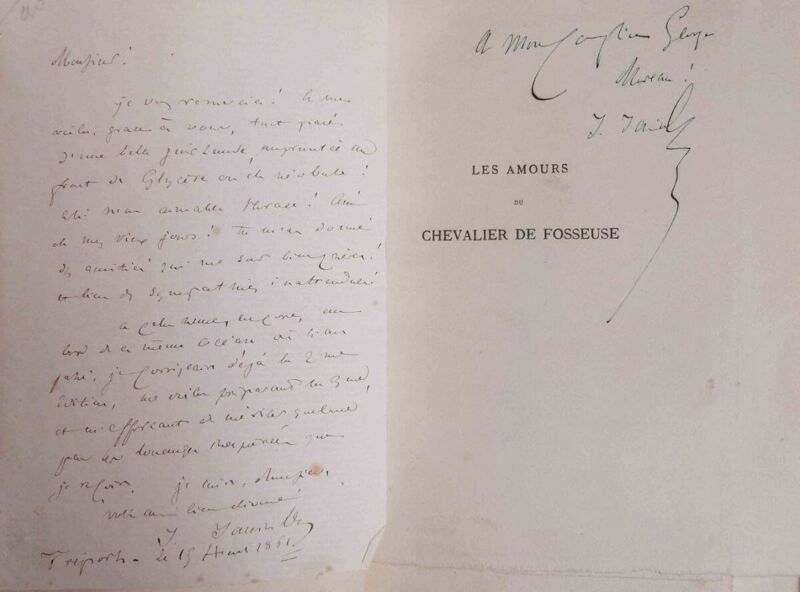 Monsieur!
je vous remercie! le me
voilà, grâce à vous, tout paré
d'une belle guirlande empruntée au
front de Glycère ou de Néobule!
ah! mon aimable Horace! Ami
de mes vieux jours! tu m'as donné
des amitiés qui me sont bien chères!
et bien des sympathies inattendues!
a cette heure, encore, au
bord de ce même océan où l'an
passé, je corrigeais déjà la 2me
édition, me voilà préparant la 3me
et m'efforçant de mériter quelque
peu les louanges que
je reçois. je suis, Monsieur,
votre ami bien dévoué
J. Janin
Tréport - le 15 1861
A Mon George
Moreau!
J. Janin
LES AMOURS
DU
CHEVALIER DE FOSSEUSE